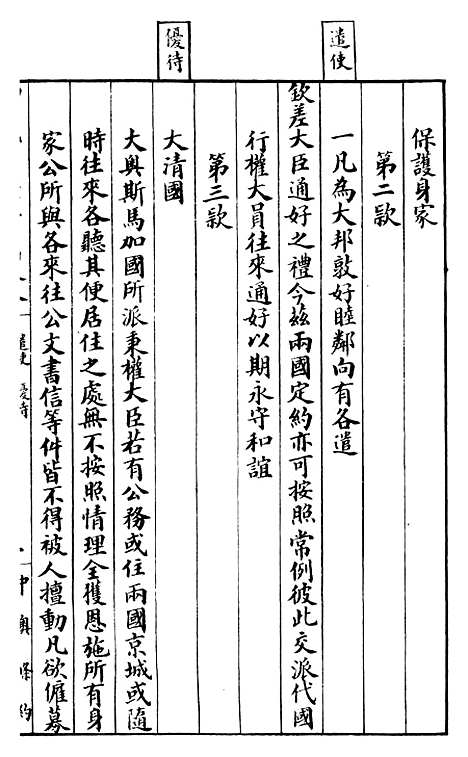 遣使
優待
保護身家
第二款
一凡為大邦敦好睦鄰向有各遣
欽差大臣通好之禮今茲兩國定約亦可按照常例彼此交派代國
行權大員往來通好以期永守和誼
第三款
大清國
大奧斯馬加國所派秉權大臣若有公務或住兩國京城或隨
時往來各聽其便居住之處無不按照情理全獲恩施所有身
家公所與各來往公文書信等件皆不得被人擅動凡欲僱募
遣使 優待
中奧條約